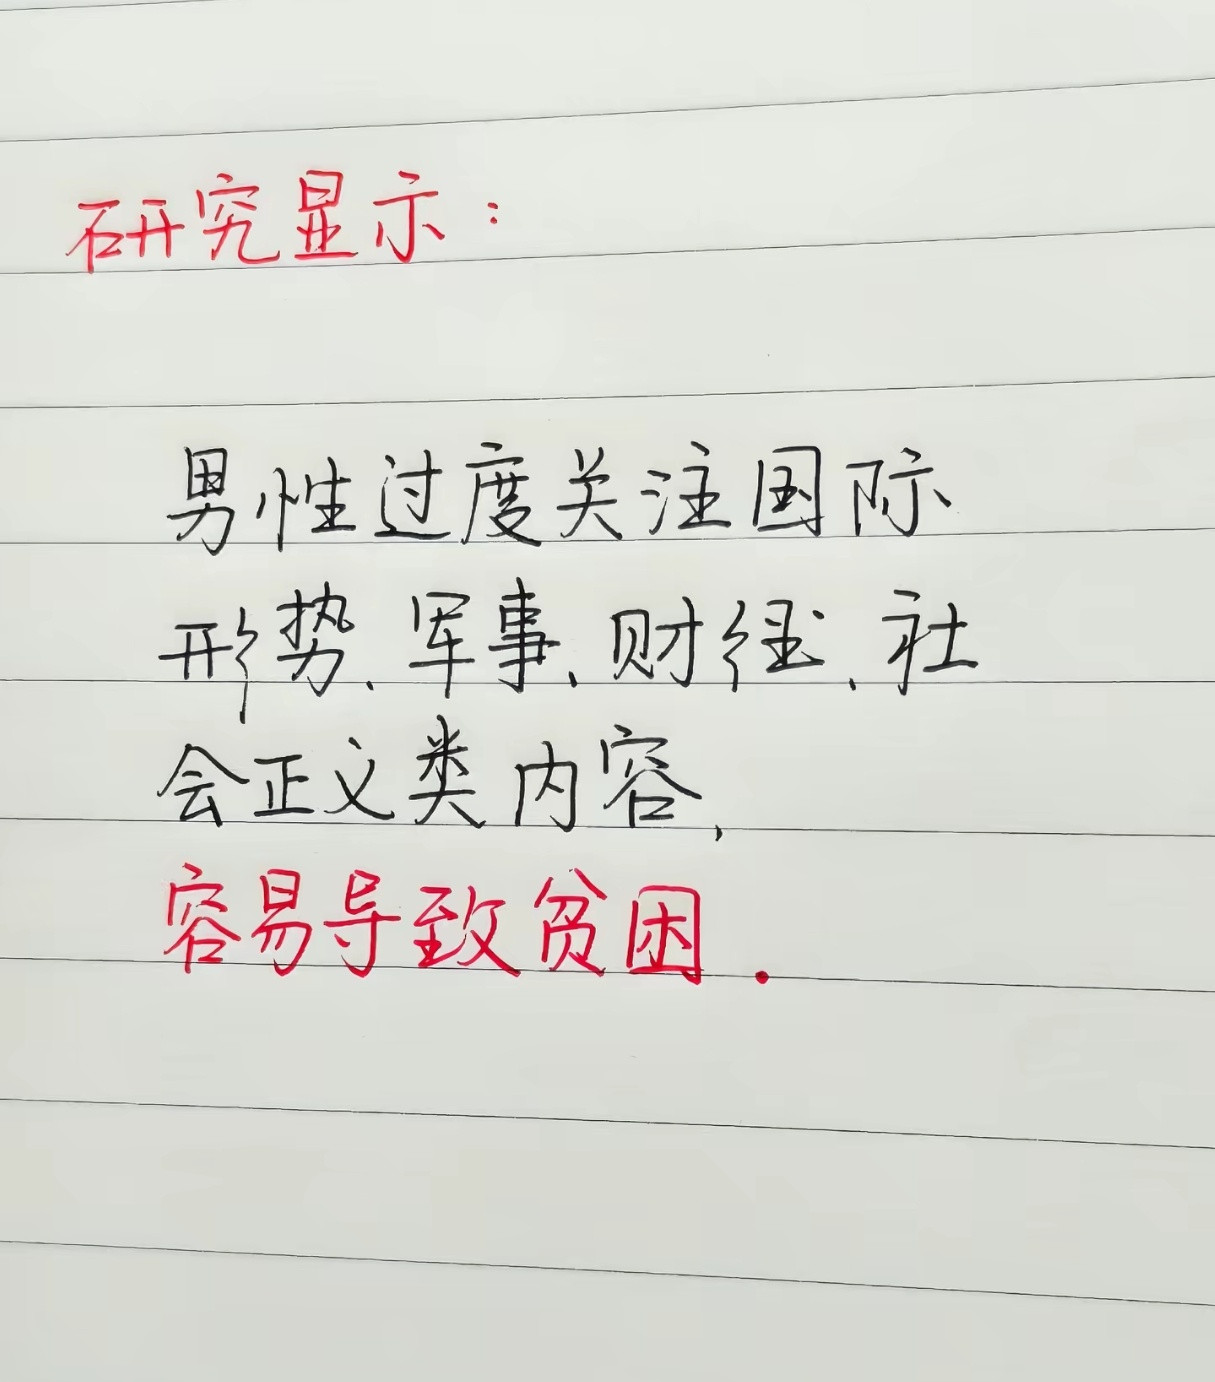 研究显示：
男性过度关注国际
形势、军事、财经、社
会正义类内容，
容易导致贫困.